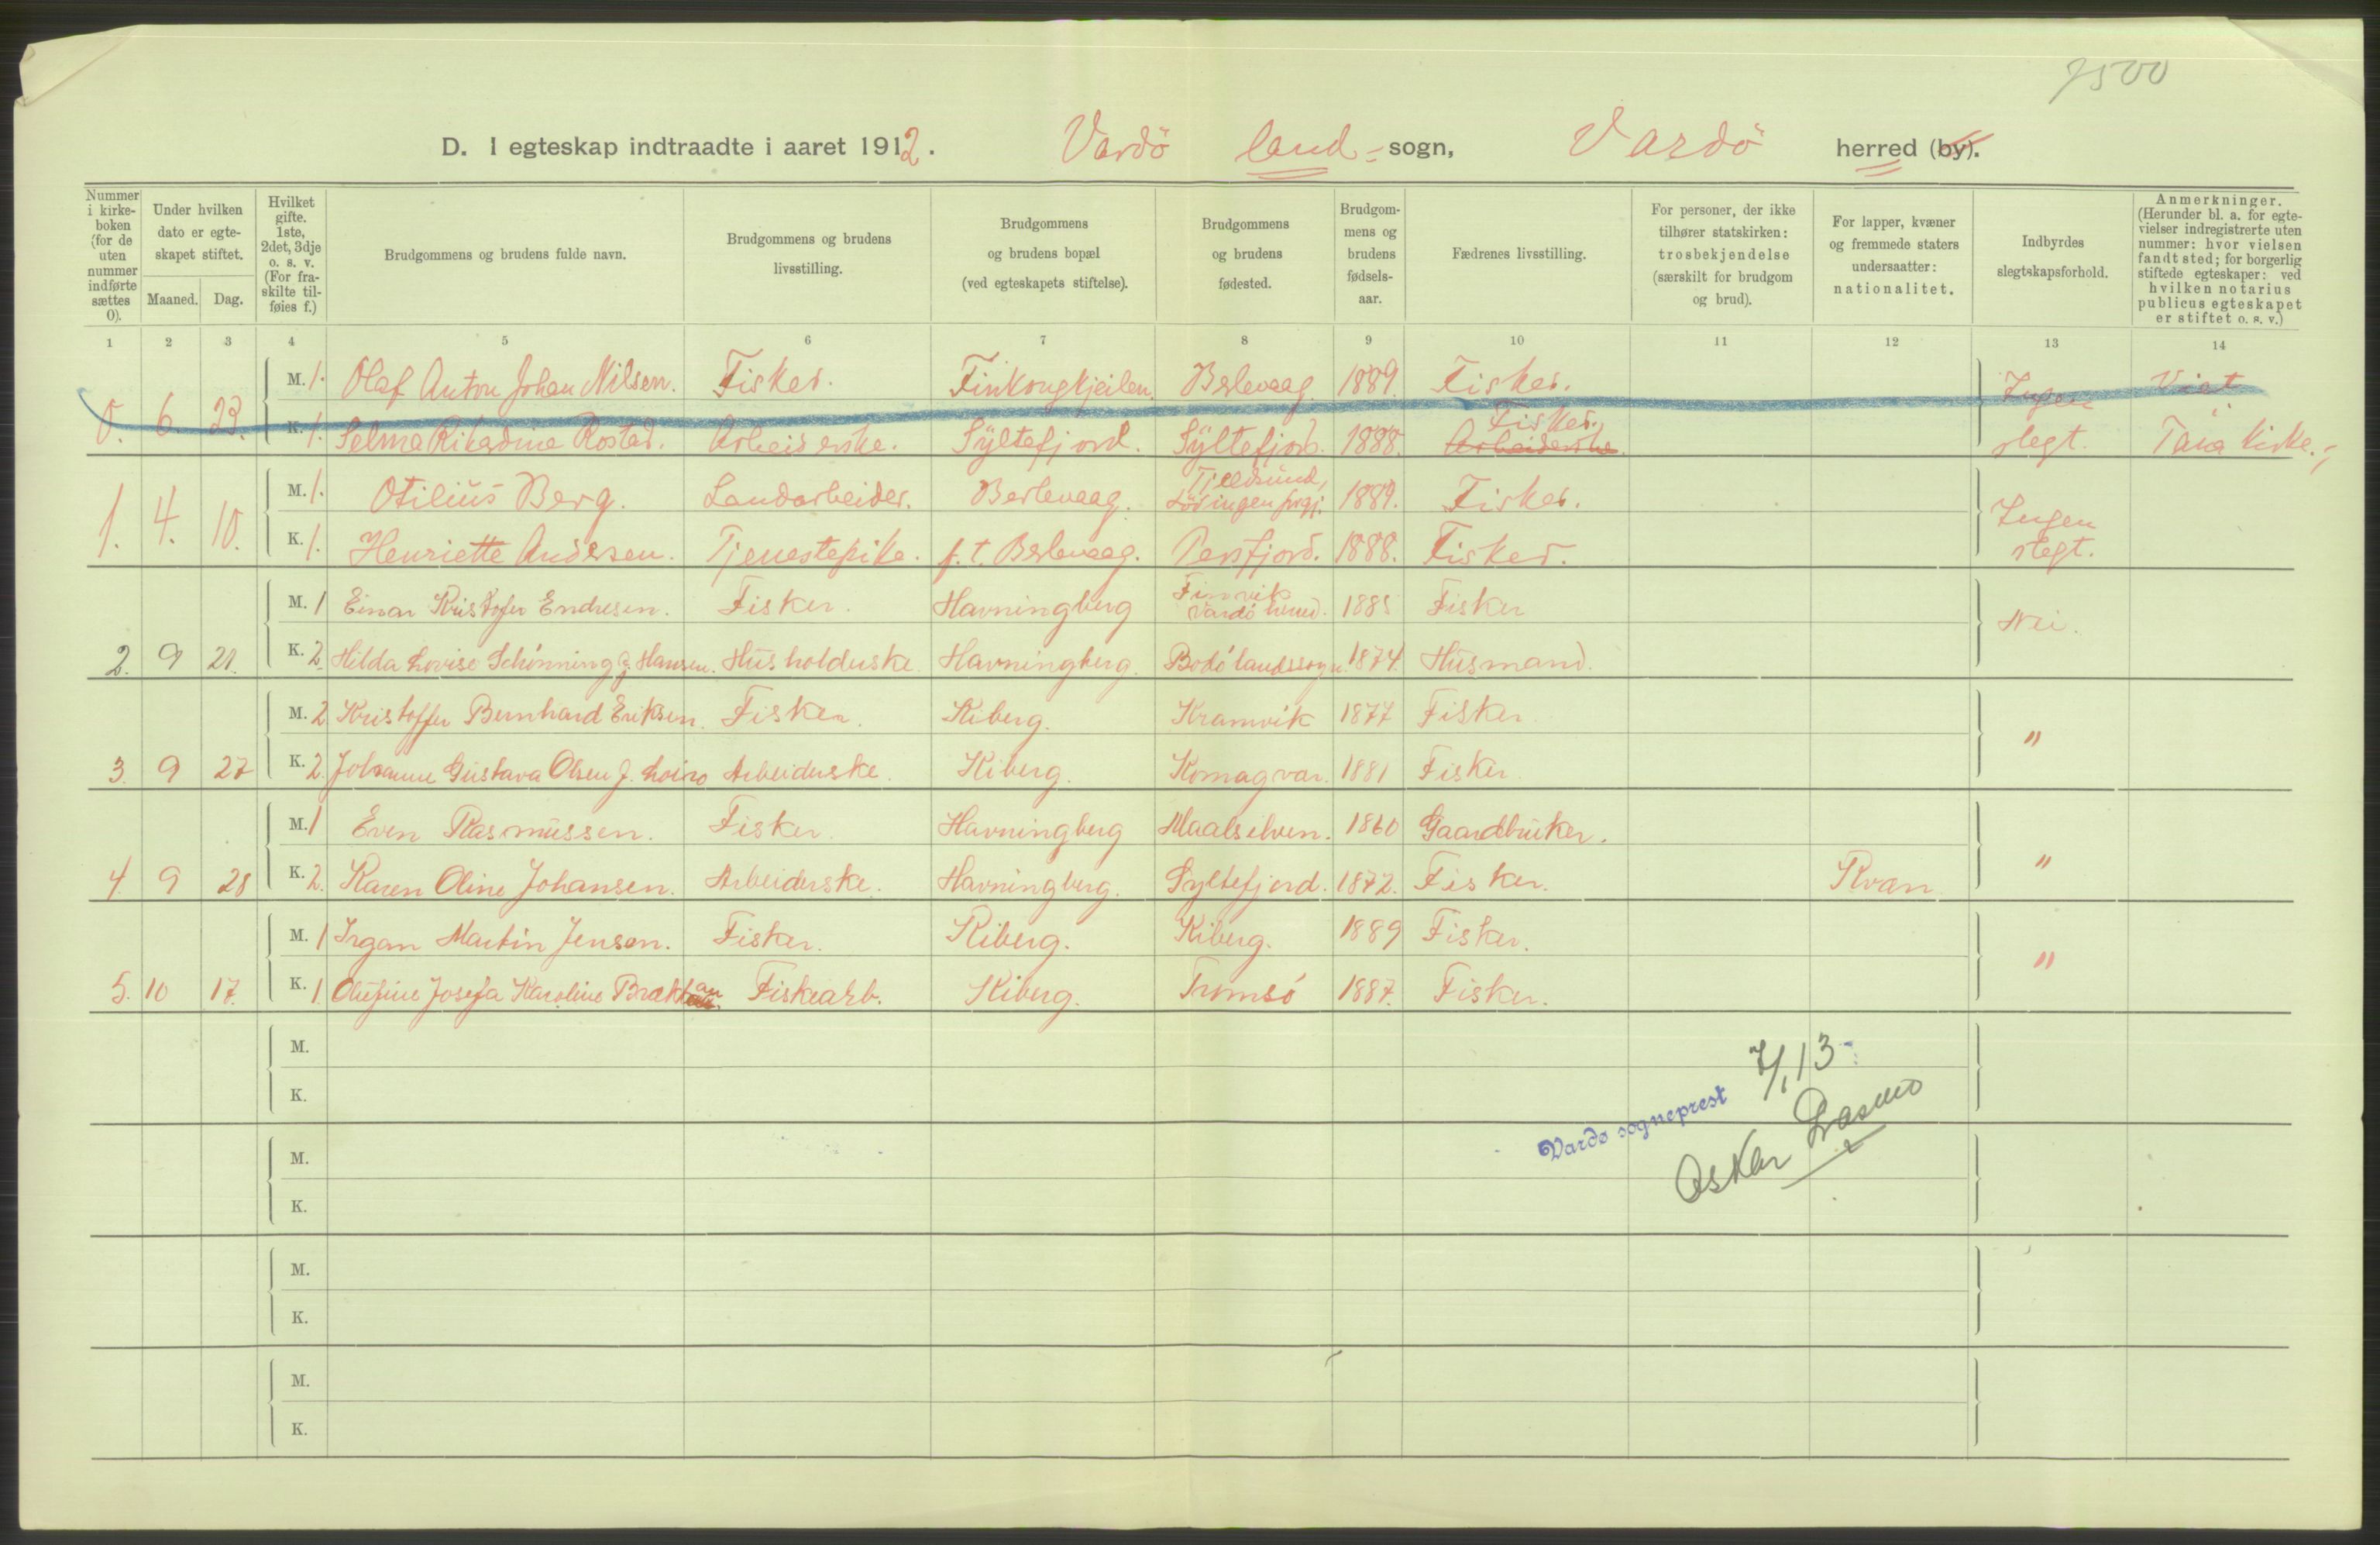 7500
D. I egteskap indtraadte i aaret 1912. Vardö land- sogn, Vardö herred (by).
Nummer i kirke- boken (for de uten nummer indførte sættes 0).
Under hvilken dato er egte- skapet stiftet.
Maaned. Dag.
Hvilket gifte. 1ste, 2det, 3dje o. s. v. (For fra- skilte til- føies f.)
Brudgommens og brudens fulde navn.
Brudgommens og brudens livsstilling.
Brudgommens og brudens bopæl (ved egteskapets stiftelse).
Brudgommens og brudens fødested.
Brudgom- mens og brudens fødsels- aar.
Fædrenes livsstilling.
For personer, der ikke tilhører statskirken: trosbekjendelse (særskilt for brudgom og brud).
For lapper, kvæner og fremmede staters undersaatter: nationalitet.
Indbyrdes slegtskapsforhold.
Anmerkninger. (Herunder bl. a. for egte- vielser indregistrerte uten nummer: hvor vielsen fandt sted; for borgerlig stiftede egteskaper: ved hvilken notarius publicus egteskapet er stiftet o. s. v.)
1 2 3 4 5 6 7 8 9 10 11 12 13 14
M. 1. Olaf Anton Johan Nilsen. Fisker. Finkongkjeilen. Berlevaag. 1889. Fisker. Ingen Viet
Fisker.
0. 6. 23. K. 1. Selma Rikardine Rostad. Arbeiderske. Syltefjord. Syltefjord. 1888. Arbeiderske. slegt. Tana kirke.
Tjeldsund,
M. 1. Otilius Berg. Landarbeider. Berlevaag. Lödingen prgj. 1889. Fisker. Ingen
1. 4. 10. K. 1. Henriette Andersen. Tjenestepike. p.t. Berlevaag. Persfjord. 1888. Fisker. slegt.
Finvik
M. 1 Einar Kristofer Endresen. Fisker. Havningberg Vardö herred. 1885 Fisker Nei.
2. 9 21. K. 2. Hilda Lovise Schönning g. Hansen. Husholderske. Havningberg. Bodö landssogn. 1874. Husmand.
M. 2 Kristoffer Bernhard Eriksen. Fisker. Kiberg. Kramvik 1877 Fisker "
3. 9 27 K. 2. Johanne Gustava Olsen f. Loiro Arbeiderske. Kiberg. Komagvær. 1881 Fisker.
M. 1 Even Rasmussen. Fisker. Havningberg Maalselven. 1860 Gaardbruker. "
4. 9 28 K. 2. Karen Oline Johansen. Arbeiderske. Havningberg. Syltefjord. 1872. Fisker. Kvan
M. 1 Irgan Martin Jensen. Fisker. Kiberg. Kiberg. 1889 Fisker. "
5. 10 17. K. 1. Olufine Josefa Karoline Brækkan Fiskearb. Kiberg. Tromsö 1887. Fisker.
M.
7/1 13
K.
Vardø sogneprest
M.
Oskar
K.
M.
K.
M.
K.